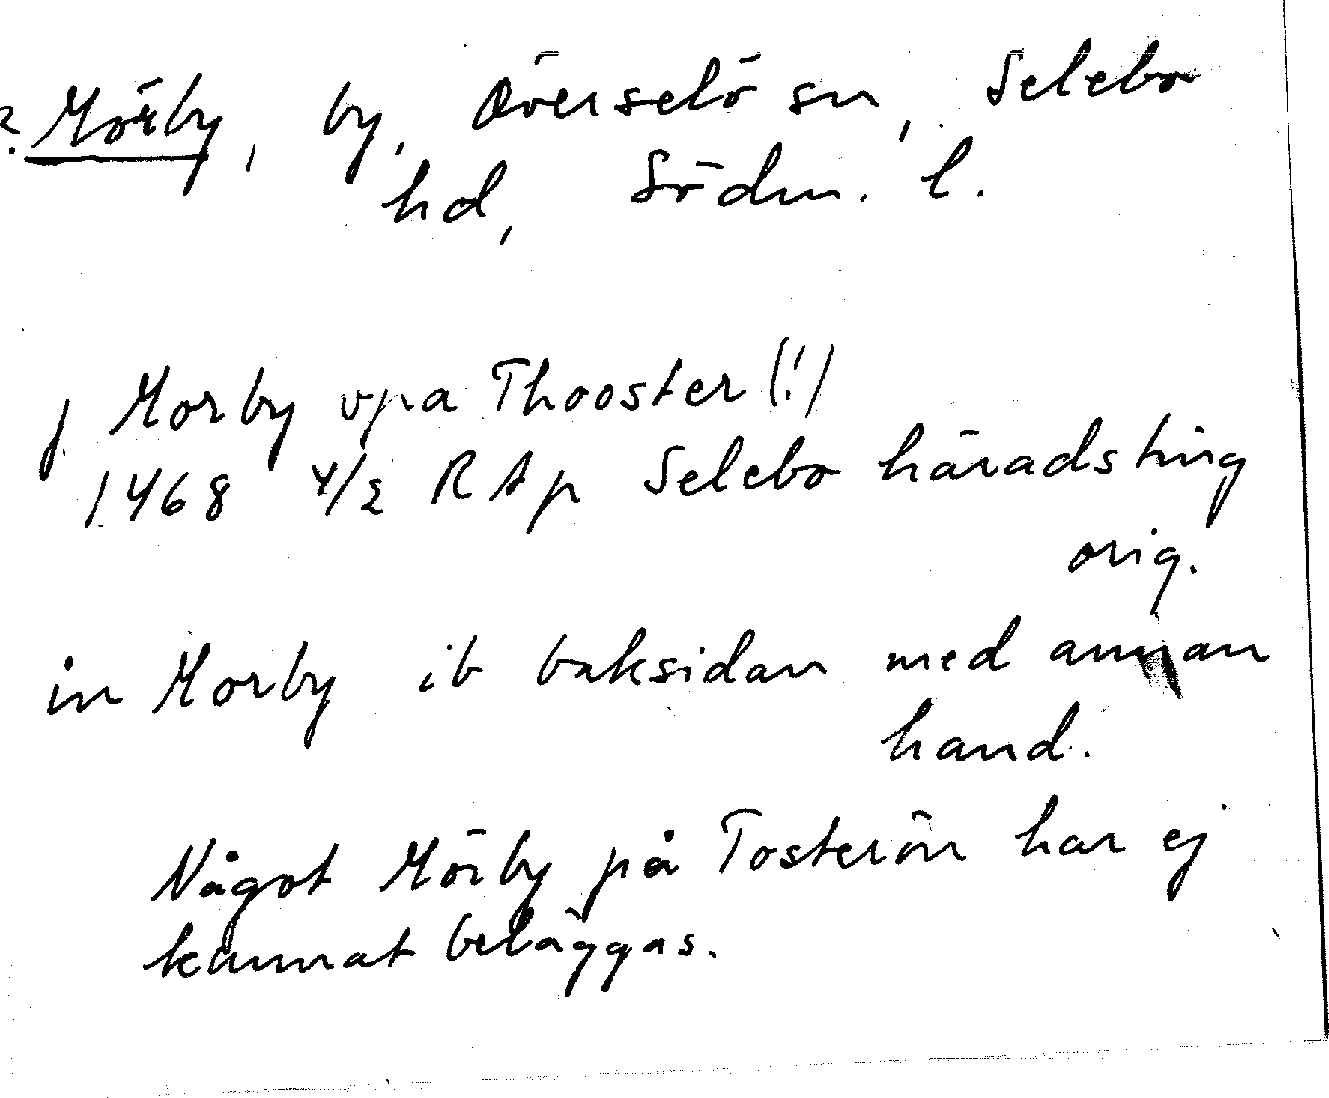 ?. Mörby, by, Överselö sn, Selebo
hd, Södm. l.
j Morby vpa Thooster (!)
1468 4/2 RAp Selebo häradsting
orig.
in Morby ib baksidan med annan
hand.
Något Mörby på Tosterön har ej
kunnat beläggas.